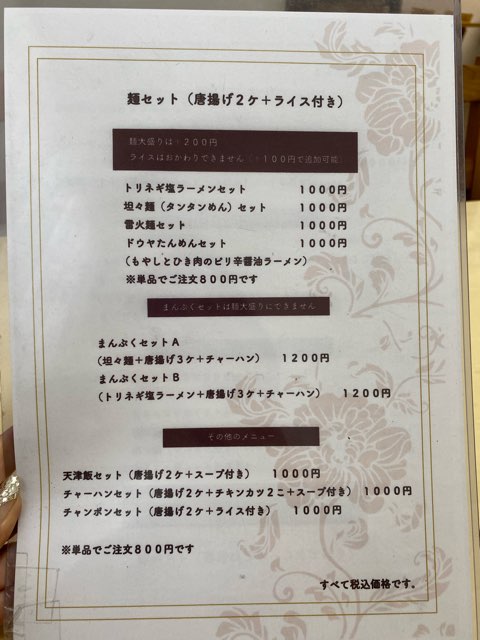 麺セット（唐揚げ２ケ＋ライス付き）
麺大盛りは＋２００円
ライスはおかわりできません（＋１００円で追加可能）
トリネギ塩ラーメンセット　１０００円
坦々麺（タンタンめん）セット　１０００円
雷火麺セット　１０００円
ドウヤたんめんセット　１０００円
（もやしとひき肉のピリ辛醤油ラーメン）
※単品でご注文８００円です
まんぷくセットは麺大盛りにできません
まんぷくセットＡ
（坦々麺＋唐揚げ３ケ＋チャーハン）　１２００円
まんぷくセットＢ
（トリネギ塩ラーメン＋唐揚げ３ケ＋チャーハン）　１２００円
その他のメニュー
天津飯セット（唐揚げ２ケ＋スープ付き）　１０００円
チャーハンセット（唐揚げ２ケ＋チキンカツ２こ＋スープ付き）　１０００円
チャンポンセット（唐揚げ２ケ＋ライス付き）　１０００円
※単品でご注文８００円です
すべて税込価格です。